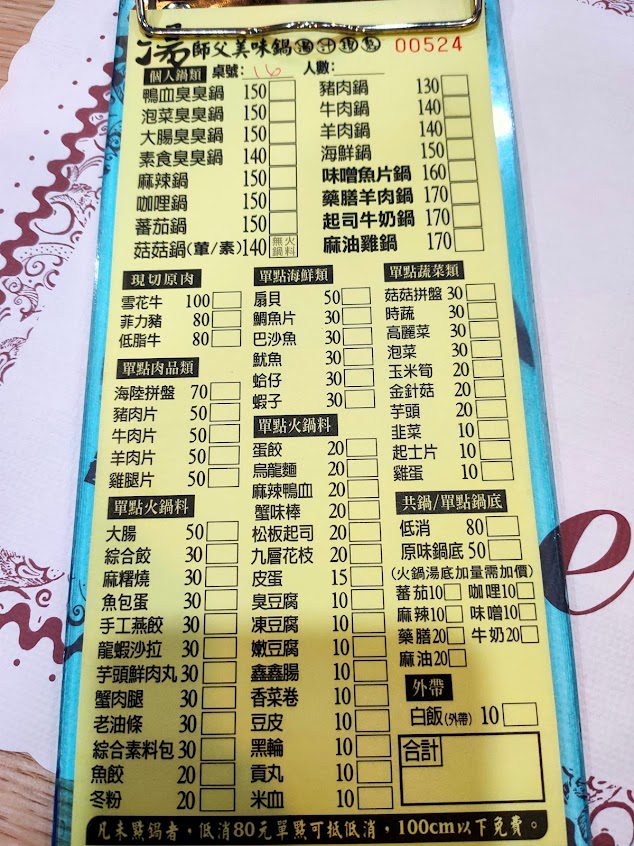 湯師父美味鍋 湯汁現熬 00524
個人鍋類 桌號: 16 人數:
鴨血臭臭鍋 150
泡菜臭臭鍋 150
大腸臭臭鍋 150
素食臭臭鍋 140
麻辣鍋 150
咖哩鍋 150
蕃茄鍋 150
菇菇鍋(葷/素) 140 無火鍋料
豬肉鍋 130
牛肉鍋 140
羊肉鍋 140
海鮮鍋 150
味噌魚片鍋 160
藥膳羊肉鍋 170
起司牛奶鍋 170
麻油雞鍋 170
現切原肉
雪花牛 100
菲力豬 80
低脂牛 80
單點肉品類
海陸拼盤 70
豬肉片 50
牛肉片 50
羊肉片 50
雞腿片 50
單點火鍋料
大腸 50
綜合餃 30
麻糬燒 30
魚包蛋 30
手工燕餃 30
龍蝦沙拉 30
芋頭鮮肉丸 30
蟹肉腿 30
老油條 30
綜合素料包 30
魚餃 20
冬粉 20
單點海鮮類
扇貝 50
鯛魚片 30
巴沙魚 30
魷魚 30
蛤仔 30
蝦子 30
單點火鍋料
蛋餃 20
烏龍麵 20
麻辣鴨血 20
蟹味棒 20
松板起司 20
九層花枝 20
皮蛋 15
臭豆腐 10
凍豆腐 10
嫩豆腐 10
鑫鑫腸 10
香菜卷 10
豆皮 10
黑輪 10
貢丸 10
米血 10
單點蔬菜類
菇菇拼盤 30
時蔬 30
高麗菜 30
泡菜 30
玉米筍 20
金針菇 20
芋頭 20
韭菜 10
起士片 10
雞蛋 10
共鍋/單點鍋底
低消 80
原味鍋底 50
(火鍋湯底加量需加價)
蕃茄10 咖哩10
麻辣10 味噌10
藥膳20 牛奶20
麻油20
外帶
白飯(外帶) 10
合計
凡未點鍋者,低消80元單點可抵低消,100cm以下免費。
e